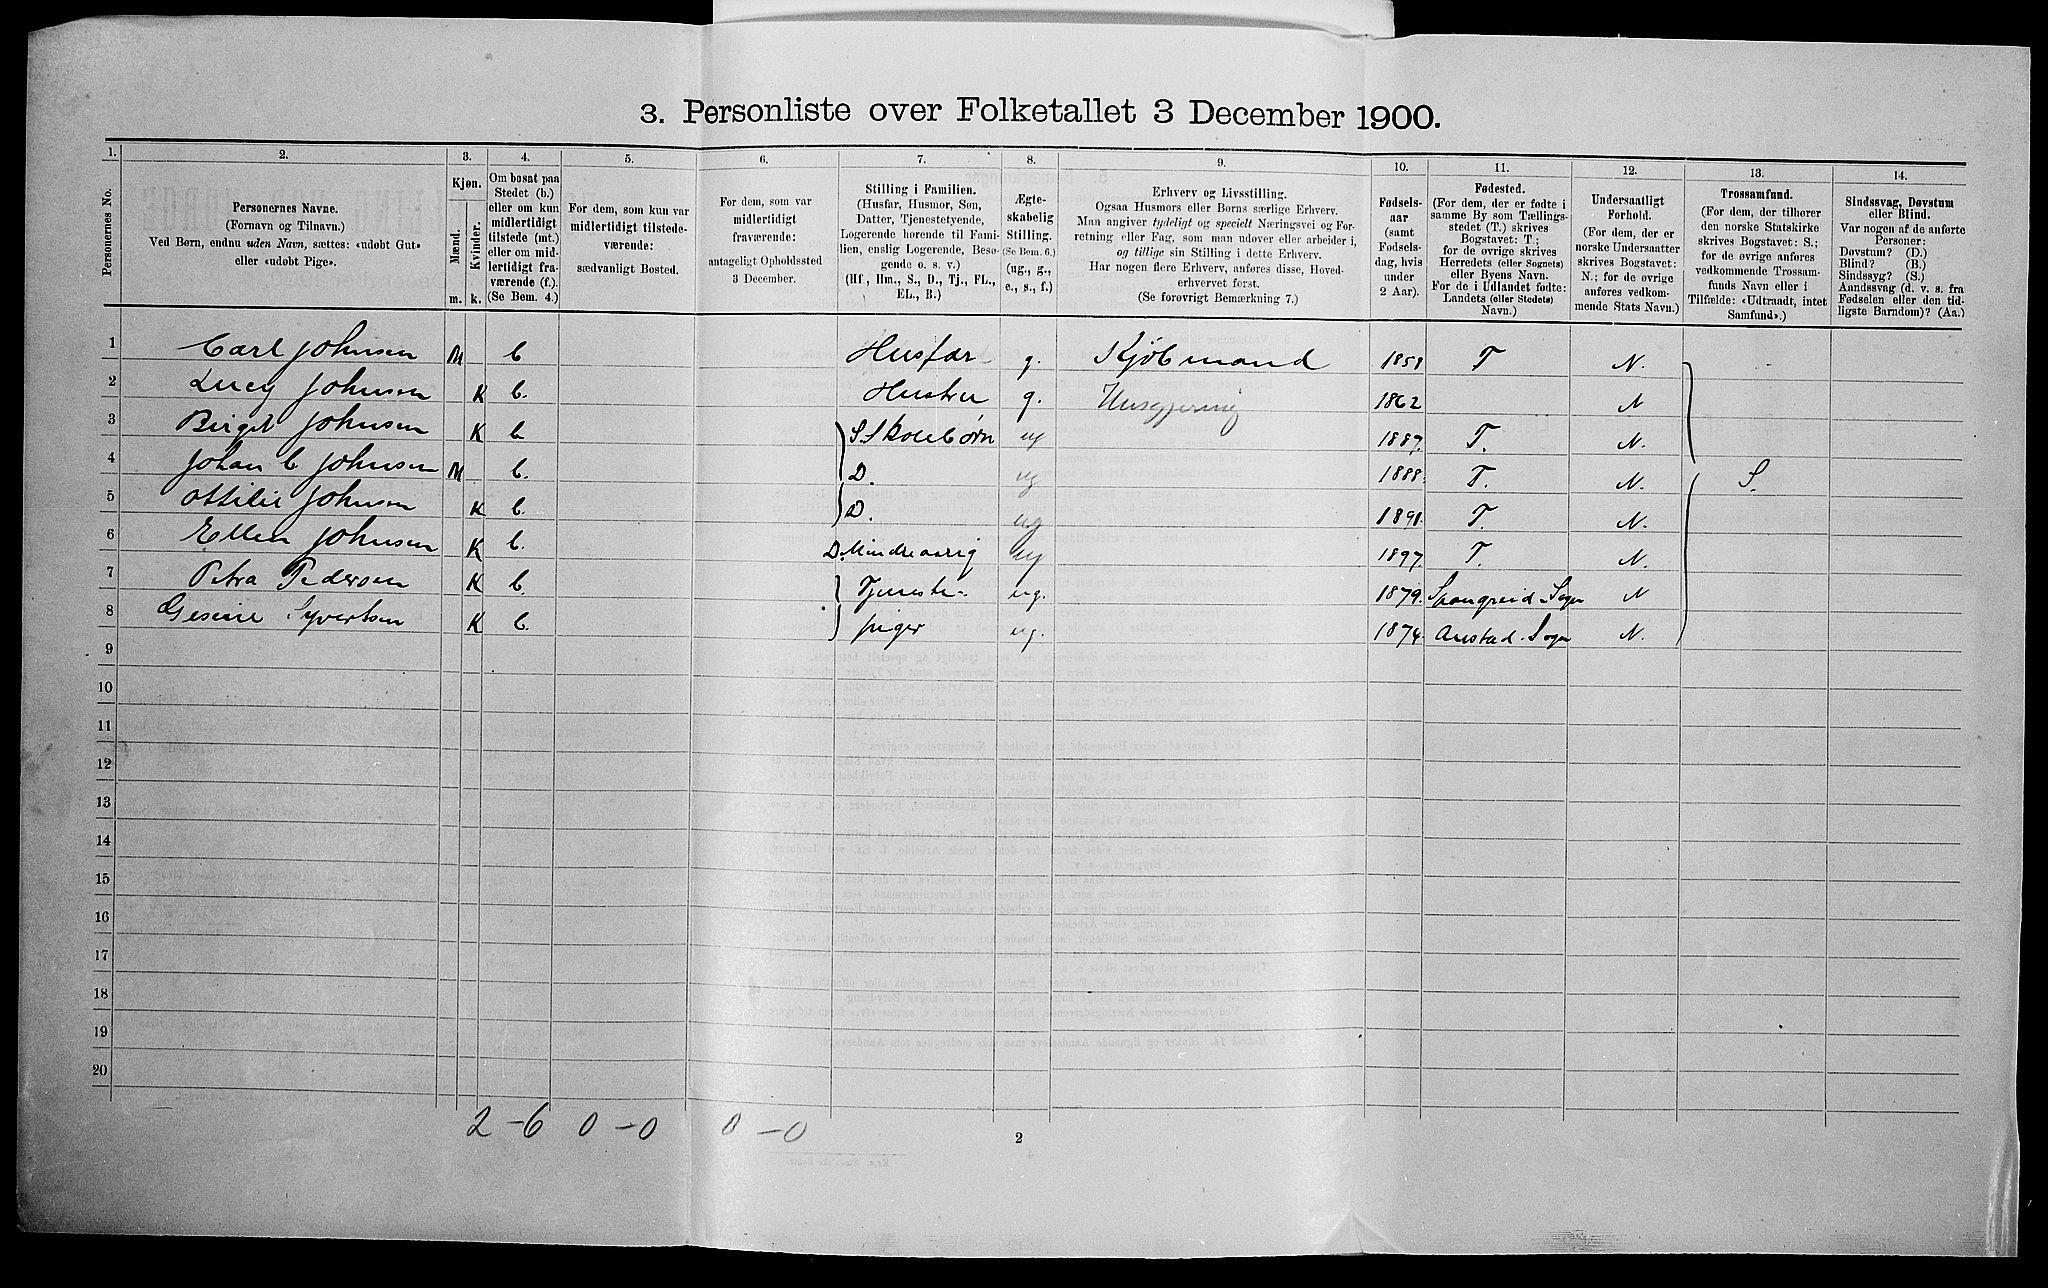 3. Personliste over Folketallet 3 December 1900.
1. 2. 3. 4. 5. 6. 7. 8. 9. 10. 11. 12. 13. 14.
Personernes No.
Personernes Navne.
(Fornavn og Tilnavn.)
Ved Børn, endnu uden Navn, sættes: «udøbt Gut»
eller «udøbt Pige».
Kjøn.
Mænd.
Kvinder.
m. k.
Om bosat paa
Stedet (b.)
eller om kun
midlertidigt
tilstede (mt.)
eller om mid-
lertidigt fra-
værende (f.)
(Se Bem. 4.)
For dem, som kun var
midlertidigt tilstede-
værende:
sædvanligt Bosted.
For dem, som var
midlertidigt
fraværende:
antageligt Opholdssted
3 December.
Stilling i Familien.
(Husfar, Husmor, Søn,
Datter, Tjenestetyende,
Logerende hørende til Fami-
lien, enslig Logerende, Besø-
gende o. s. v.)
(Hf, Hm., S., D., Tj., FL.,
EL., B.)
Ægte-
skabelig
Stilling.
(Se Bem. 6.)
(ug., g.,
e., s., f.)
Erhverv og Livsstilling.
Ogsaa Husmors eller Børns særlige Erhverv.
Man angiver tydeligt og specielt Næringsvei og For-
retning eller Fag, som man udøver eller arbeider i,
og tillige sin Stilling i dette Erhverv.
Har nogen flere Erhverv, anføres disse, Hoved-
erhvervet først.
(Se forøvrigt Bemærkning 7.)
Fødsels-
aar
(samt
Fødsels-
dag, hvis
under
2 Aar).
Fødested.
(For dem, der er fødte i
samme By som Tællings-
stedet (T.) skrives
Bogstavet: T;
for de øvrige skrives
Herredets (eller Sognets)
eller Byens Navn.
For de i Udlandet fødte:
Landets (eller Stedets)
Navn.)
Undersaatligt
Forhold.
(For dem, der er
norske Undersaatter
skrives Bogstavet:
N.; for de øvrige
anføres vedkom-
mende Stats Navn.)
Trossamfund.
(For dem, der tilhører
den norske Statskirke
skrives Bogstavet: S.;
for de øvrige anføres
vedkommende Trossam-
funds Navn eller i
Tilfælde: «Udtraadt, intet
Samfund».)
Sindssvag, Døvstum
eller Blind.
Var nogen af de anførte
Personer:
Døvstum? (D.)
Blind? (B.)
Sindssyg? (S.)
Aandssvag (d. v. s. fra
Fødselen eller den tid-
ligste Barndom)? (Aa.)
1 Carl Johnsen M b Husfar g. Kjøbmand 1858 T N.
2 Lucy Johnsen K b. Hustru g. Husgjerning 1862 N
3 Birgit Johnsen K b S Skolebørn ug 1887. T. N.
4 Johan C Johnsen M b. D. ug 1888. T. N. S.
5 Ottilie Johnsen K b. D. ug 1891. T. N.
6 Ellen Johnsen K b. D. Mindreaarig ug 1897. T. N.
7 Petra Pedersen K b. Tjeneste- ug. 1879. Spangreid Sogn N
8 Gesine Syvertsen K b. piger ug. 1874. Austad Sogn N.
9
10
11
12
13
14
15
16
17
18
19
20
2 - 6 0 - 0 0 - 0
2